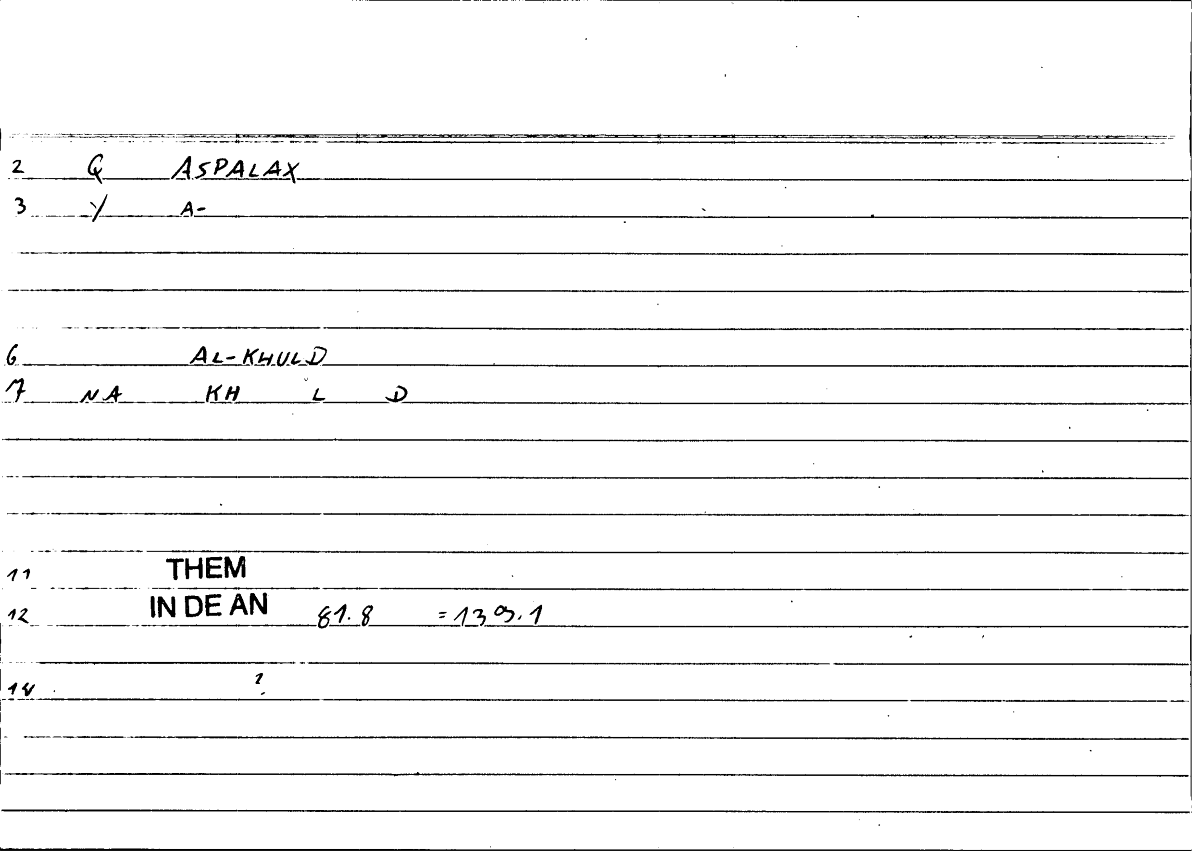 2 Q ASPALAX
3 Y A-
6 AL-KHULD
7 NA KH L D
11 THEM
12 IN DE AN 81.8 =139.1
14 ?